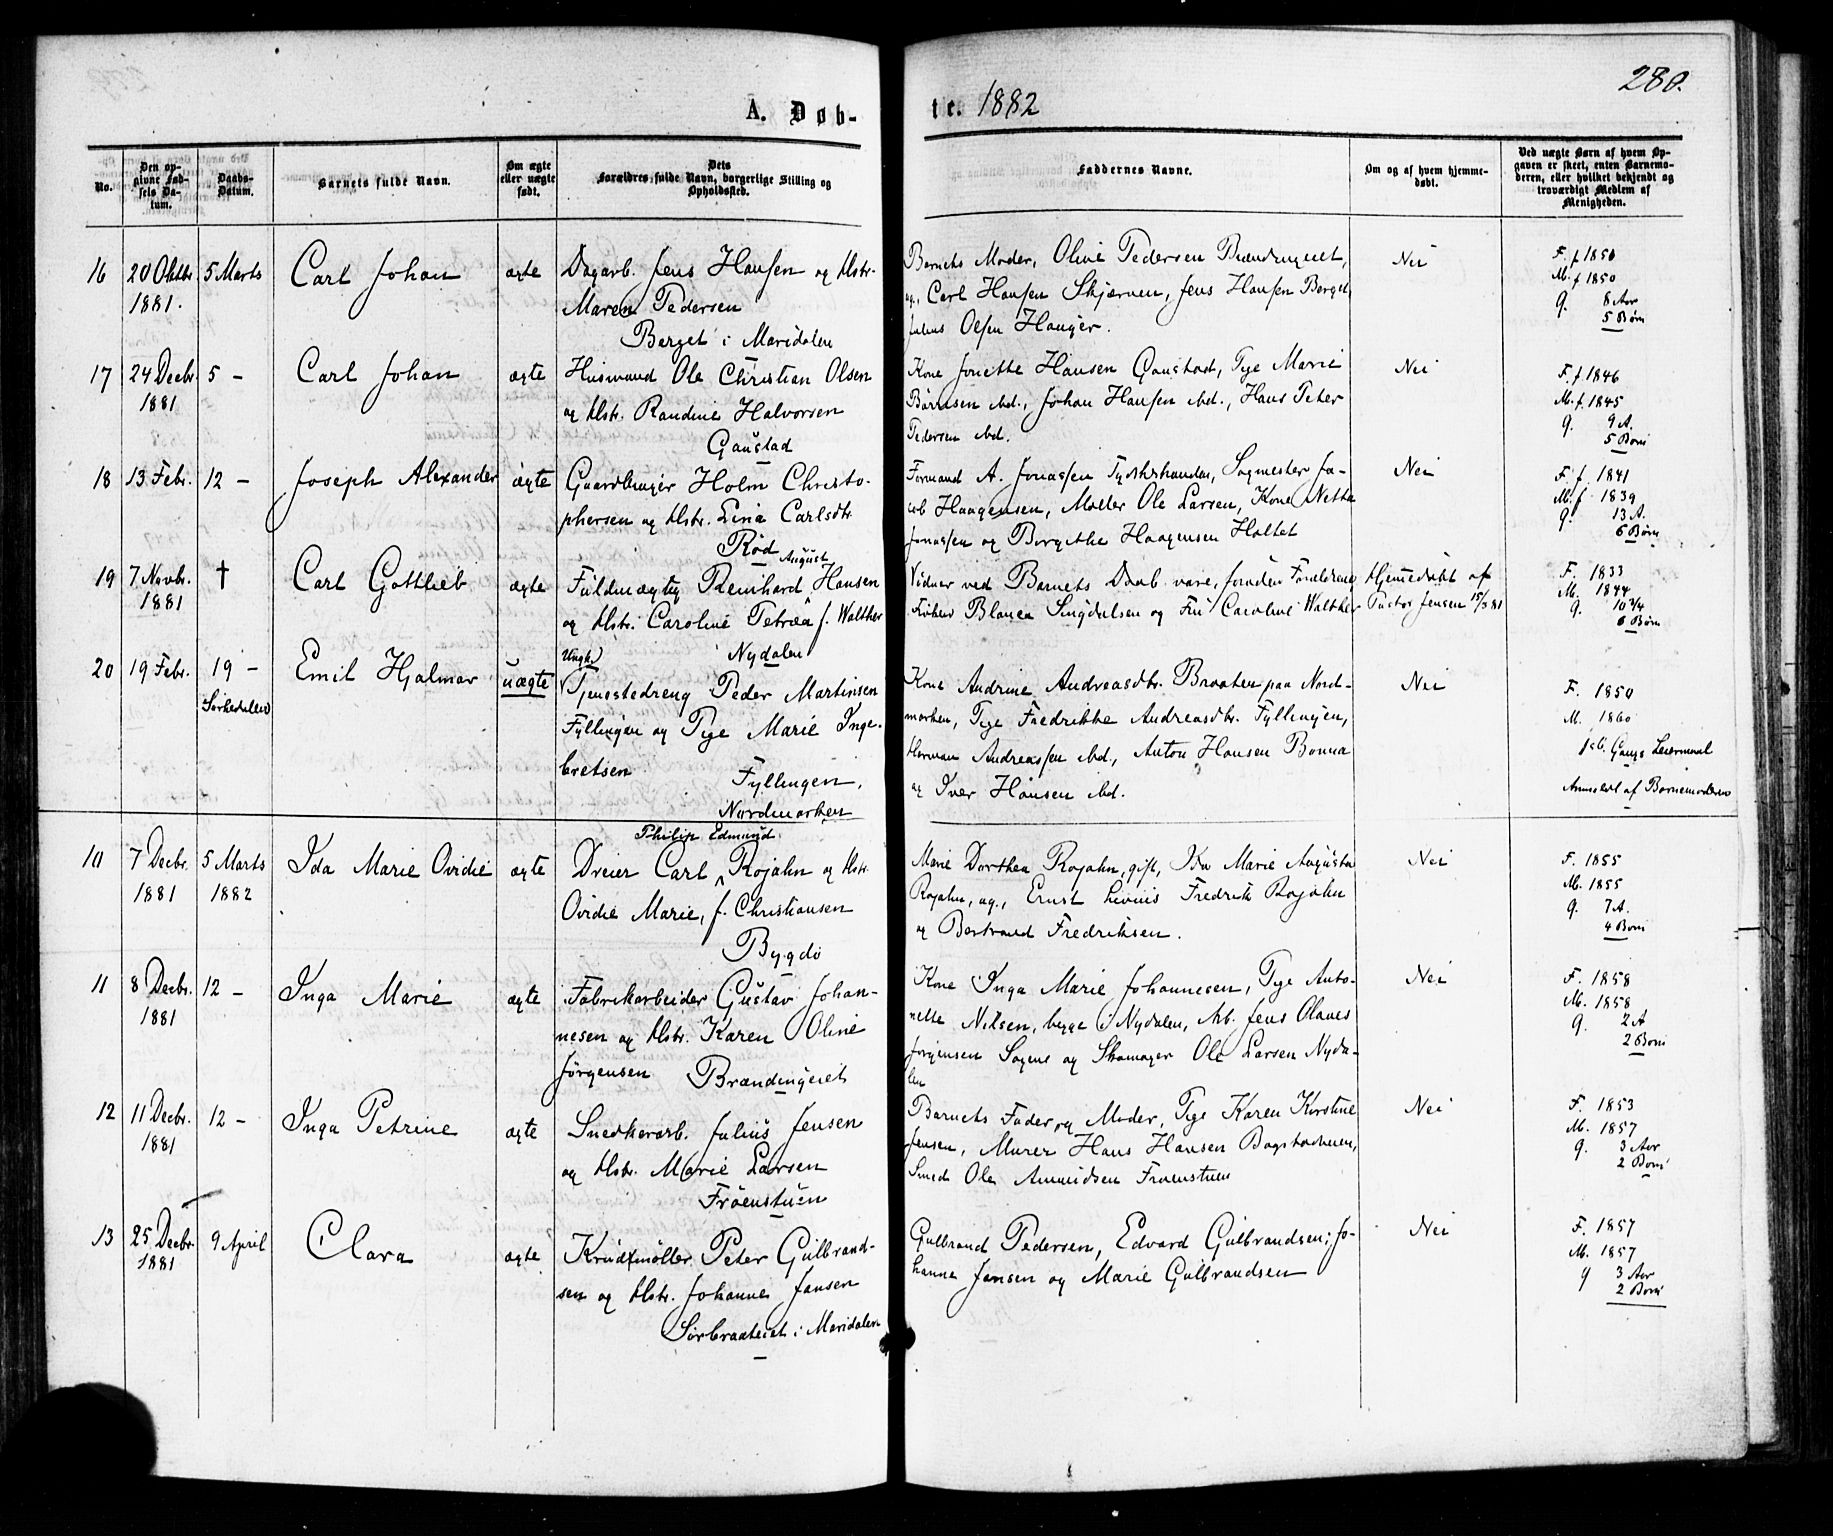 280.
A. Døb-
te. 1882
No.
Den op-
givne Fød-
sels Da-
tum.
Daabs-
Datum.
Barnets fulde Navn.
Om ægte
eller uægte
født.
Dets
Forældres fulde Navn, borgerlige Stilling og
Opholdssted.
Faddernes Navne.
Om og af hvem hjemme-
døbt.
Ved uægte Børn af hvem Op-
gaven er skeet, enten Barnemo-
deren, eller hvilket bekjendt og
troværdigt Medlem af
Menigheden.
16 20 Oktbr. 5 Marts Carl Johan ægte Dagarb. Jens Hansen og Hstr.
1881. Maren Pedersen
Berget i Maridalen
Barnets Moder, Oline Pedersen Brændingeiet,
ug., Carl Hansen Skjærven, Jens Hansen Berget,
Julius Olsen Hauger.
Nei
F. f. 1850
M. f 1850
g. 8 Aar
5 Børn
17 24 Decbr. 5 - Carl Johan ægte Husmand Ole Christian Olsen
1881 og Hstr. Randine Halvorsen
Gaustad
Kone Jonette Hansen Gaustad, Pige Marie
Børresen ibd., Johan Hansen ibd., Hans Peter
Pedersen ibd.
Nei
F. f. 1846
M. f. 1845
g. 9 A.
5 Børn
18 13 Febr. 12 - Joseph Alexander ægte Gaardbruger Holm Christo-
phersen og Hstr. Lina Carlsdtr.
Rød
Formand A. Jonassen Tydskestranden, Sagmester Ja-
cob Haagensen, Møller Ole Larsen, Kone Netta
Jonassen og Borgithe Haagensen Holtet
Nei
F. f. 1841
M. f. 1839
g. 13 A.
6 Børn
19 7 Novbr. † Carl Gottlieb ægte Fuldmægtig Reinhard August Hansen
1881 og Hstr. Caroline Petrea f. Walther
Nydalen
Vidner ved Barnets Daab vare, foruden Forældrene
Frøken Blanca Singdalsen og Frk Caroline Walther
Hjemmedøbt af
Pastor Jensen 15/3 81
F. 1833
M. 1844
g. 10 3/4
6 Børn
20 19 Febr. 19 - Emil Hjalmar uægte Ungk.
Sørkedalen
Tjenestedreng Peder Martinsen
Fyllingen og Pige Marie Inge-
bretsen Fyllingen,
Nordmarken
Kone Andrine Andreasdtr. Braaten paa Nord-
marken, Pige Fredrikke Andreasdtr. Fyllingen,
Herman Andreassen ibd., Anton Hansen Bonna
og Iver Hansen ibd.
Nei
F. 1850
M. 1860
1ste Gangs Leiermaal
Anmeldt af Barnemoderen
10 7 Decbr. 5 Marts Ida Marie Ovidie ægte Dreier Carl Philip Edmund Rojahn og Hstr.
1881 1882 Ovidie Marie, f. Christiansen
Bygdø
Marie Dorthea Rojahn, gift, Ida Marie Augusta
Rojahn, ug., Ernst Livius Fredrik Rojahn
og Bertrand Fredriksen.
Nei
F. 1855
M. 1855
g. 7 A.
4 Børn
11 8 Decbr. 12 - Inga Marie ægte Fabrikarbeider Gustav Johan-
1881 nesen og Hstr. Karen Oline
Jørgensen Brændingeiet
Kone Inga Marie Johannesen, Pige Anto-
nette Nilsen, begge i Nydalen, Arb. Jens Olaves
Jørgensen Sagene og Skomager Ole Larsen Nyda-
len
Nei
F. 1858
M. 1858
g. 2 A
2 Børn
12 11 Decbr. 12 - Inga Petrine ægte Snedkerarb. Julius Jensen
1881 og Hstr. Marie Larsen
Frøenstuen
Barnets Fader og Moder, Pige Karen Kirstine
Jensen, Murer Hans Hansen Bagstukuen,
Smed Ole Amundsen Frøenstuen
Nei
F. 1853
M. 1857
g. 3 Aar
2 Børn
13 25 Decbr. 9 April Clara ægte Krudtmøller Peter Gulbrand-
1881 sen og Hstr. Johanne Jansen
Sørbraateiet i Maridalen
Gulbrand Pedersen, Edvard Gulbrandsen, Jo-
hanne Jansen og Marie Gulbrandsen
Nei
F. 1857
M. 1857
g 3 Aar
2 Børn